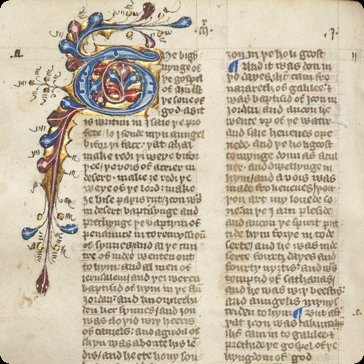 He bigyn
nynge of
þe gospel
of
þe sone of
god· as it
is writun in isaie þe pro
fete/ lo I sende myn aungel
bifor þi face/ þat shal
make redi þi weye bifor
þee/ þe vois of a crier in
desert· make ȝe redi þe
weye of þe lord· make
ȝe hise paþis riȝt/ Joon was
in desert baptisynge and
prechynge þe baptym of
penaunce in to remyssioun
of synnes· and al þe cun
tre of iudee wenten out
to hym· and alle men of
ierusalem/ and þei weren
baptisid of hym in þe
iordan· and knowlechi
den her synnes/ and ioon
was cloþid wiþ heeris
of camels· and a girdil of
skyn was aboute hise le
dis/ and he eet hony sou
ioon in þe hooli goost
And it was don in
þo dayes· ihc cam fro
nazareth of galilee·
was baptisid of ioon in
iordan/ and anoon he
wente up of þe watir
and saie heuenes ope
nede· and þe hooli goost
comynge doun as a cul
uer· and dwellynge in
hym/ and a vois was
maad fro heuenes/ þou
art my louede so
ne· in þee I am plesid/
and anoon þe spirit put
tide hym forþ in to de
seert/ and he was in de
seert fourty dayes and
fourty nyȝtis/ and was
temptid of sathanas/
and he was wiþ beestis·
and aungels mynys
triden to hym/ But af
tir ioon was takun
ihc cam in to galilee·
prechide þe gospel of god